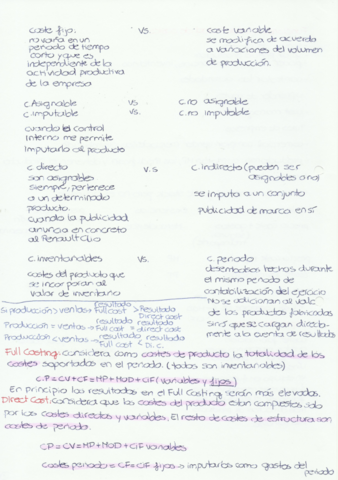 coste fijo: vs. coste variable
no varía en un se modifica de acuerdo
periodo de tiempo a variaciones del volumen
corto y que es de producción.
independiente de la
actividad productiva
de la empresa
c. Asignable vs c. no asignable
c. imputable vs. c. no imputable
cuando el control
interno me permite
imputarlo al producto
c. directo v.s c. indirecto (pueden ser
son asignables asignables o no)
siempre, pertenece
a un determinado se imputa a un conjunto
producto.
cuando la publicidad publicidad de marca en sí
anuncia en concreto
al Renault Clio
c. inventariables vs. c. periodo
costes del producto que desembolsos hechos durante
se incorporan al el mismo periodo de
valor de inventario contabilización del ejercicio
No se adicionan al valor
de los productos fabricados
sino que se cargan directa-
mente a la cuenta de resultado
Si producción > ventas → resultado Full cost > Resultado Direct cost
Producción = ventas → resultado Full cost = resultado direct cost
Producción < ventas → resultado Full cost < resultado D.C.
Full Costing: considera como costes de producto la totalidad de los
costes soportados en el periodo. (todos son inventariables)
CP = CV + CF = MP + MOD + CIF (variables y fijos)
En principio los resultados en el Full Costing serán más elevados.
Direct Cost: considera que los costes del producto están compuestos solo
por los costes directos y variables. El resto de costes de estructura son
costes de periodo.
CP = CV = MP + MOD + CIF variables
Costes periodo = CF = CIF fijos → imputarlos como gastos del
periodo